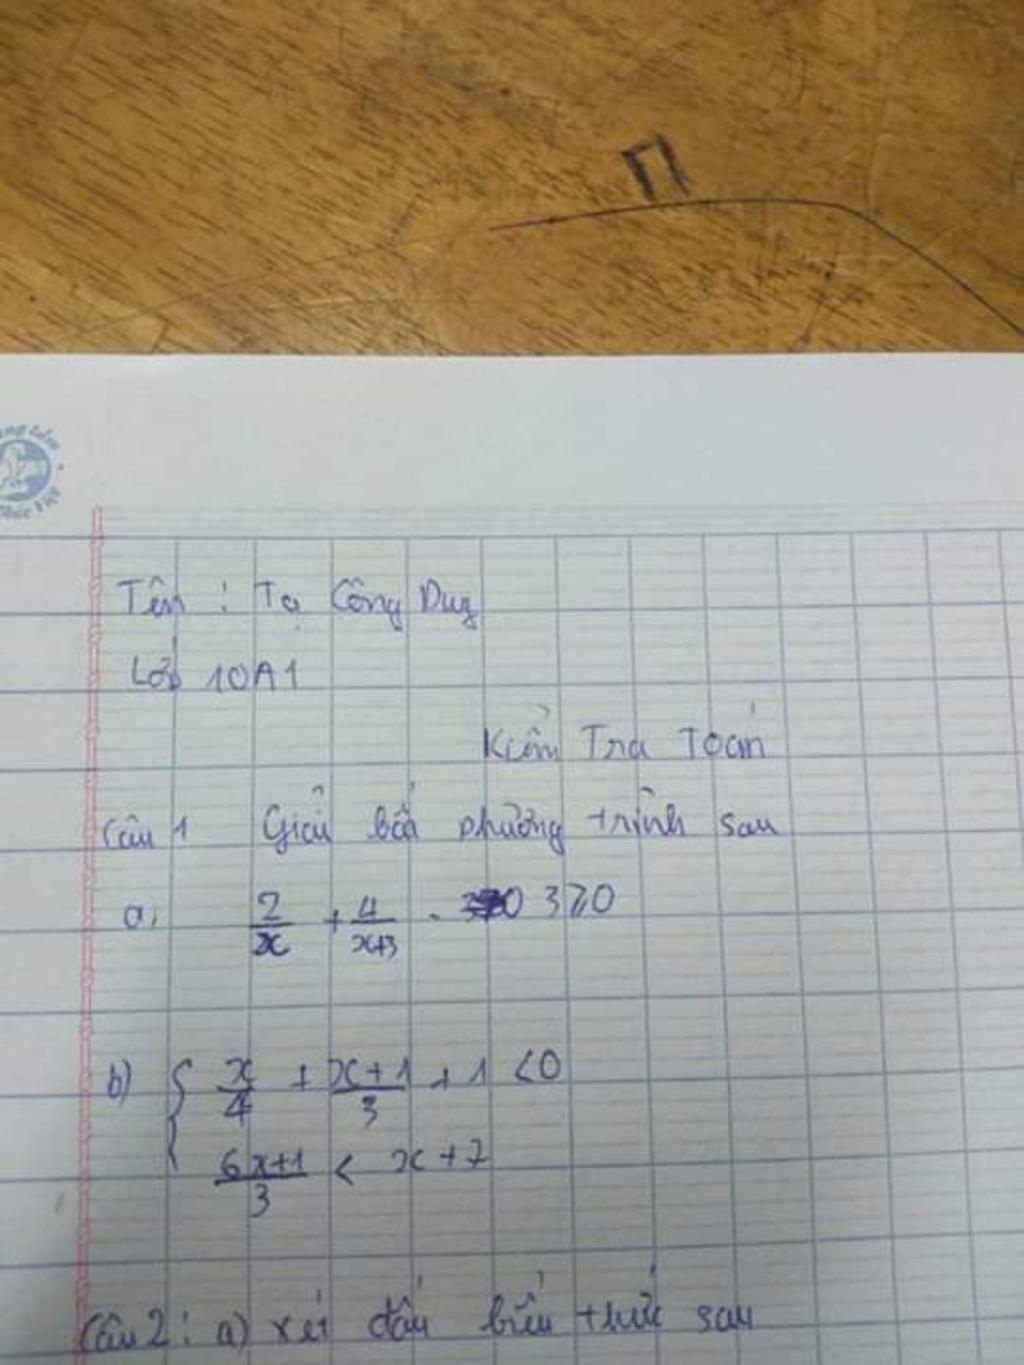 Tên : Tạ Công Duy
Lớp 10A1
Kiểm Tra Toán
Câu 1 Giải bất phương trình sau
a, 2/x + 4/x+3 - 3 ≥ 0
b) { x/4 + x+1/3 + 1 < 0
6x+1/3 < x + 7
Câu 2 : a) xét dấu biểu thức sau